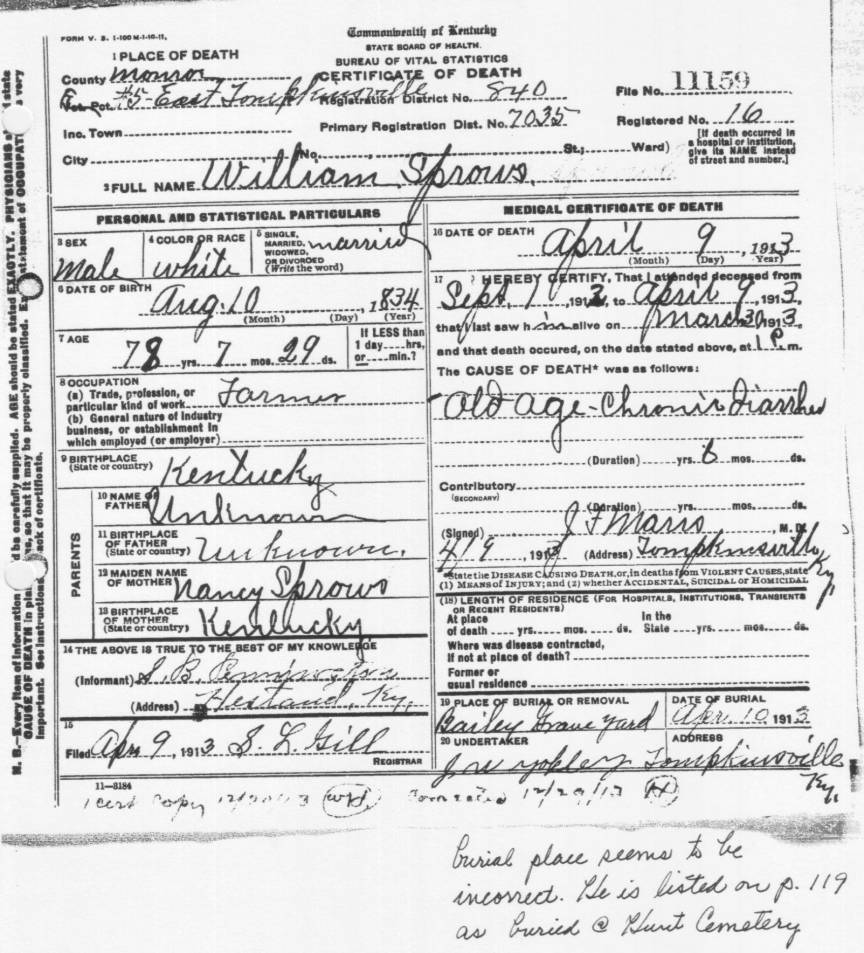 FORM V. S. 1-100 M-1-10-11.
Commonwealth of Kentucky
STATE BOARD OF HEALTH.
BUREAU OF VITAL STATISTICS
CERTIFICATE OF DEATH
1 PLACE OF DEATH
County Monroe
Vot. Pct. #5-East Tompkinsville
Registration District No. 840
File No. 11159
Inc. Town
Primary Registration Dist. No. 7035
Registered No. 16
City No. , St.; Ward)
[If death occurred in a hospital or institution, give its NAME instead of street and number.]
2 FULL NAME William Sprows.
PERSONAL AND STATISTICAL PARTICULARS
3 SEX
Male
4 COLOR OR RACE
white
5 SINGLE, MARRIED, WIDOWED, OR DIVORCED (Write the word)
married
6 DATE OF BIRTH
Aug. 10, 1834
(Month) (Day) (Year)
7 AGE
78 yrs. 7 mos. 29 ds.
If LESS than
1 day....hrs,
or.....min.?
8 OCCUPATION
(a) Trade, profession, or
particular kind of work Farmer
(b) General nature of industry
business, or establishment in
which employed (or employer)
9 BIRTHPLACE
(State or country) Kentucky
PARENTS
10 NAME OF
FATHER Unknown
11 BIRTHPLACE
OF FATHER
(State or country) Unknown.
12 MAIDEN NAME
OF MOTHER Nancy Sprows
13 BIRTHPLACE
OF MOTHER
(State or country) Kentucky
14 THE ABOVE IS TRUE TO THE BEST OF MY KNOWLEDGE
(Informant) S. B.
(Address) Hestand, Ky,
15
Filed Apr 9, 1913 S. L. Gill
REGISTRAR
11—3184
MEDICAL CERTIFICATE OF DEATH
16 DATE OF DEATH
April 9, 1913
(Month) (Day) (Year)
17 I HEREBY CERTIFY, That I attended deceased from
Sept, 1, 191 , to April 9, 1913,
that I last saw him alive on March 30, 1913
and that death occured, on the date stated above, at 1 P.m.
The CAUSE OF DEATH* was as follows:
Old age-Chronic Diarrhea
(Duration) yrs. 6 mos. ds.
Contributory
(SECONDARY)
(Duration) yrs. mos. ds.
(Signed) J F Marrs, M. D.
4/9 1913 (Address) Tompkinsville, Ky,
*State the DISEASE CAUSING DEATH, or, in deaths from VIOLENT CAUSES, state
(1) MEANS OF INJURY; and (2) whether ACCIDENTAL, SUICIDAL or HOMICIDAL
(18) LENGTH OF RESIDENCE (FOR HOSPITALS, INSTITUTIONS, TRANSIENTS
OR RECENT RESIDENTS)
At place In the
of death .... yrs..... mos. .... ds. State ....yrs.....mos.....ds.
Where was disease contracted,
If not at place of death?
Former or
usual residence
19 PLACE OF BURIAL OR REMOVAL
Bailey Grave Yard
DATE OF BURIAL
Apr. 10 1913
20 UNDERTAKER
J W Yokley
ADDRESS
Tompkinsville Ky,
1 cert copy
burial place seems to be
incorrect. He is listed on p. 119
as buried @ Hunt Cemetery